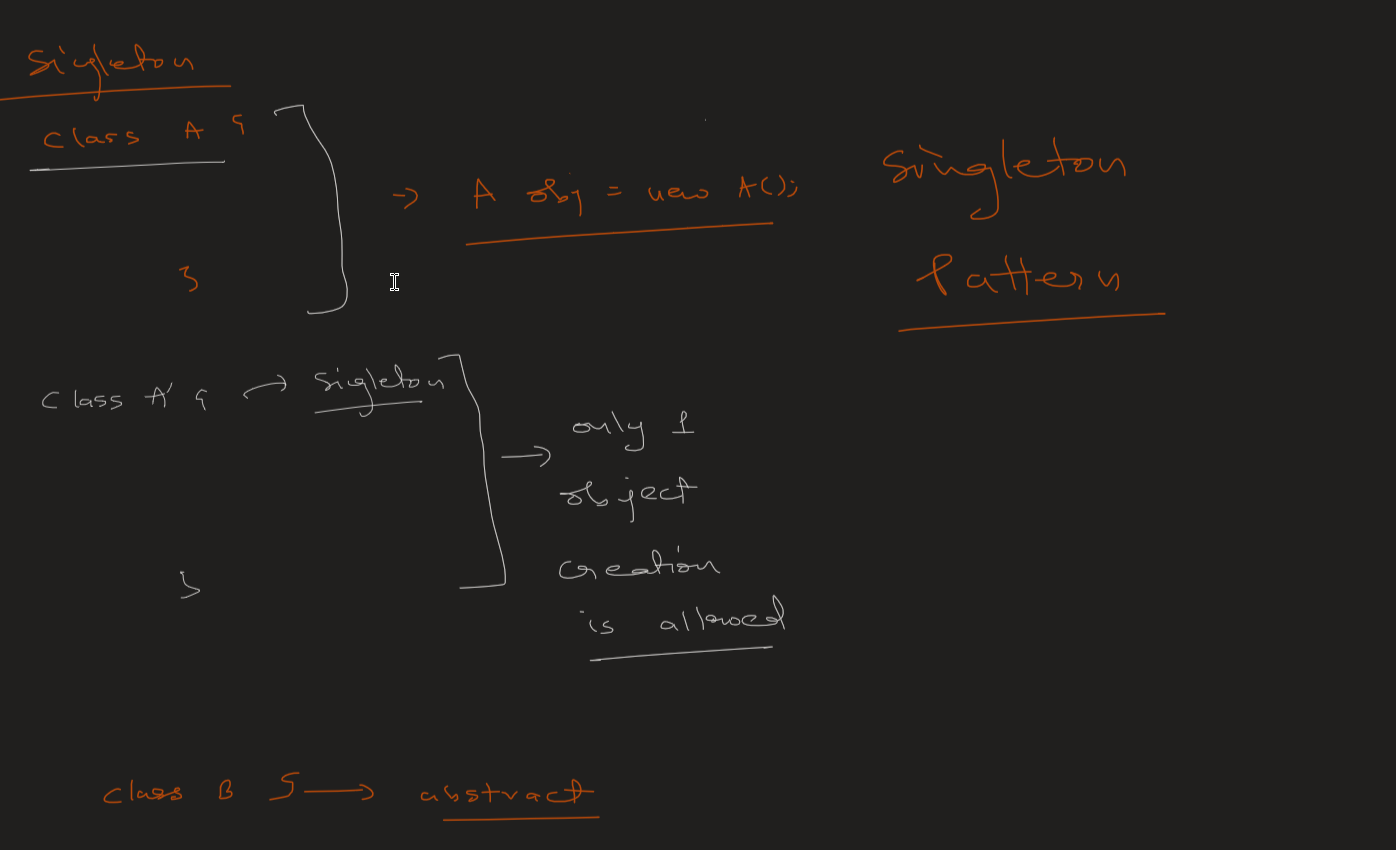 Singleton
Class A {
}
→ A obj = new A();
Singleton
Pattern
Class A' { → Singleton
}
→ only 1
object
creation
is allowed
Class B { → abstract